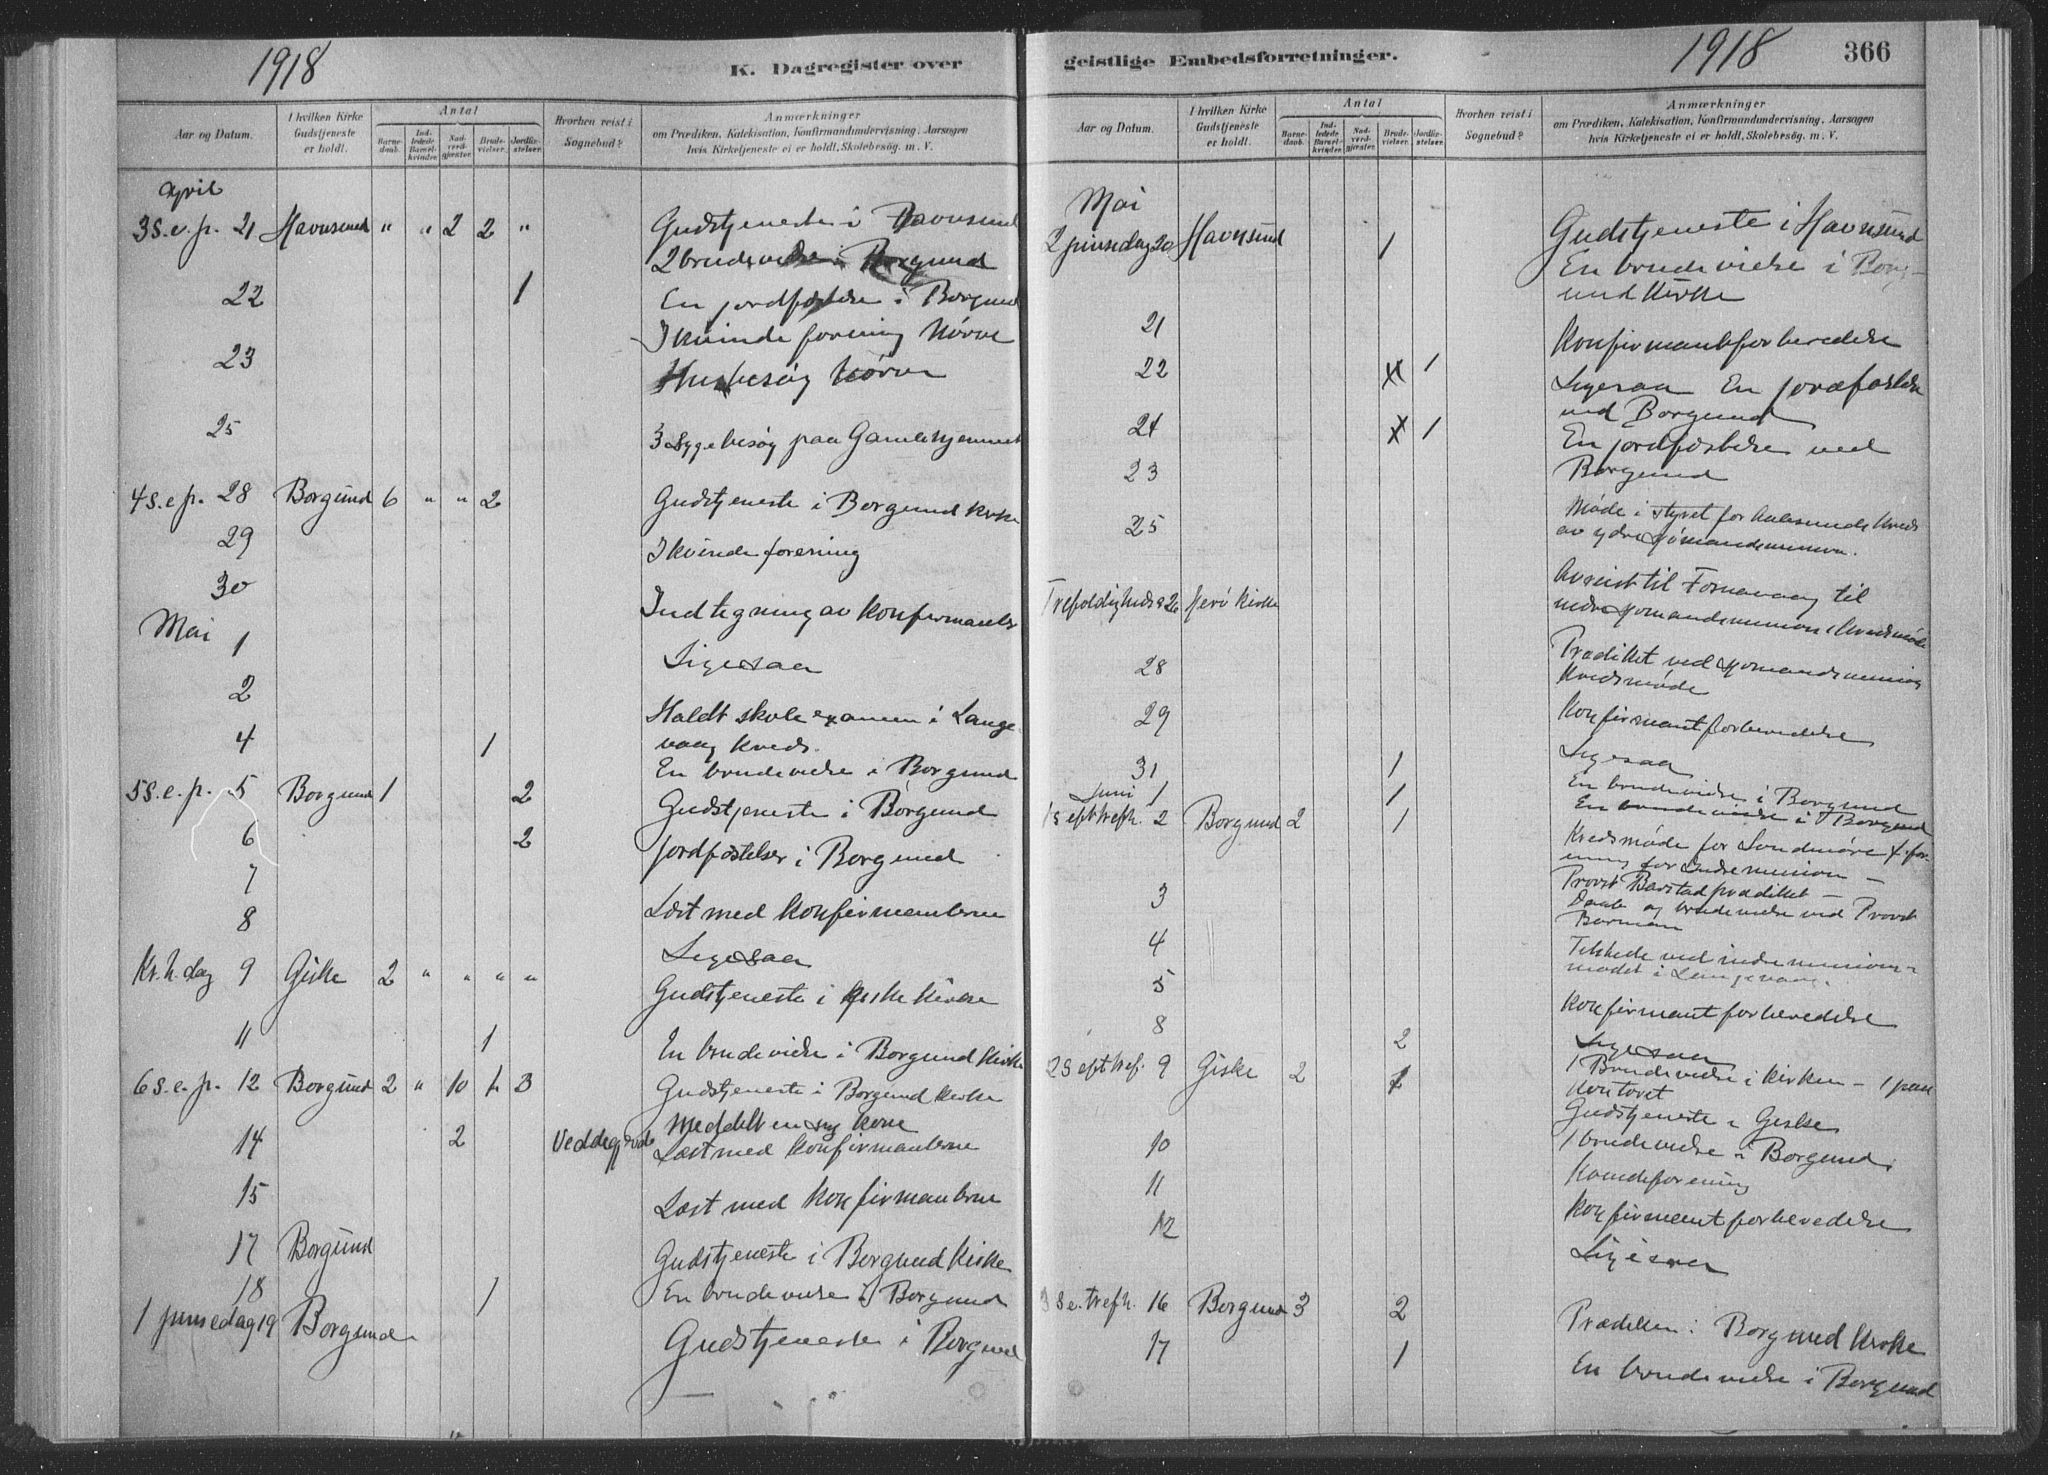 1918
K. Dagregister over
Aar og Datum.
I hvilken Kirke Gudstjeneste er holdt.
Antal
Barnedaab.
Indledede Barselkvinder.
Nadverdgjester.
Brudevielser.
Jordfæstelser.
Hvorhen reist i Sognebud?
Anmærkninger
om Prædiken, Katekisation, Konfirmandundervisning, Aarsagen
hvis Kirketjeneste ei er holdt, Skolebesög. m. V.
April
3 S. e. p. 21 Havnsund " " 2 2 " Gudstjeneste i Havnsund
2 brudevielse i Borgund
22 1 En jordfæstelse i Borgund
I kvindeforening Nørve
23 Husbesøg Nørve
25 3 Sygebesøg paa Gamlehjemmet
4 S. e. p. 28 Borgund 6 " " 2 Gudstjeneste i Borgund Kirke
29 I kvindeforening
30 Indtegning av Konfirmanter
Mai
1 Ligesaa
2 Holdt skoleexamen i Lange
vaag Kreds.
4 1 En brudevielse i Borgund
5 S. e. p. 5 Borgund 1 2 Gudstjeneste i Borgund
6 2 Jordfæstelser i Borgund
7 Læst med Konfirmanterne
8 Ligesaa
Kr. h. dag 9 Giske 2 " " " " Gudstjeneste i Giske Kirke
11 1 En brudevielse i Borgund Kirke
6 S. e. p. 12 Borgund 2 " 10 1 3 Gudstjeneste i Borgund Kirke
Meddelt en syg kone
14 2 Veddegjerde Læst med Konfirmanterne
15 Læst med Konfirmanterne
17 Borgund Gudstjeneste i Borgund Kirke
18 1 En brudevielse i Borgund
1 pinsedag 19 Borgund Gudstjeneste i Borgund
geistlige Embedsforretninger.
1918
366
Aar og Datum.
I hvilken Kirke Gudstjeneste er holdt.
Antal
Barnedaab.
Indledede Barselkvinder.
Nadverdgjester.
Brudevielser.
Jordfæstelser.
Hvorhen reist i Sognebud?
Anmærkninger
om Prædiken, Katekisation, Konfirmandundervisning, Aarsagen
hvis Kirketjeneste ei er holdt, Skolebesög. m. V.
Mai
2 pinsedag 20 Havnsund 1 Gudstjeneste i Havnsund
En brudevielse i Borg-
und Kirke
21 Konfirmantforberedelse
22 1 Ligesaa En jordfæstelse
ved Borgund
24 1 En jordfæstelse ved
23 Borgund
25 Møde i styret for Aalesunds Kreds
av ydre sjømandsmission.
Trefoldigheds s 26 Herø Kirke Avreist til Fosnavaag til
indre sjomandsmission Kredsmøde
28 Prædiket ved sjomandsmission
Kredsmøde
29 Konfirmantforberedelse
Ligesaa
31 1 En brudevielse i Borgund
Juni 1 1 En brudevielse i Borgund
1 S eft trefh. 2 Borgund 2 1 Kredsmøde for Søndmøre
for Indremission –
Provst Barstad prædiket –
3 Daab og brudevielse ved Provst
4 Tilstede ved indremissions-
mødet i Langevaag.
5 Konfirmantforberedelse
8 2 Ligesaa
1 Brudevielse i kirken – 1 paa
Kontoret
2 S eft tref. 9 Giske 2 1 Gudstjeneste i Giske
10 1 brudevielse i Borgund
Kvindeforening
11 Konfirmantforberedelse
12 Ligesaa
3 S e. trefh. 16 Borgund 3 2 Prædiken i Borgund Kirke
17 1 En brudevielse i Borgund